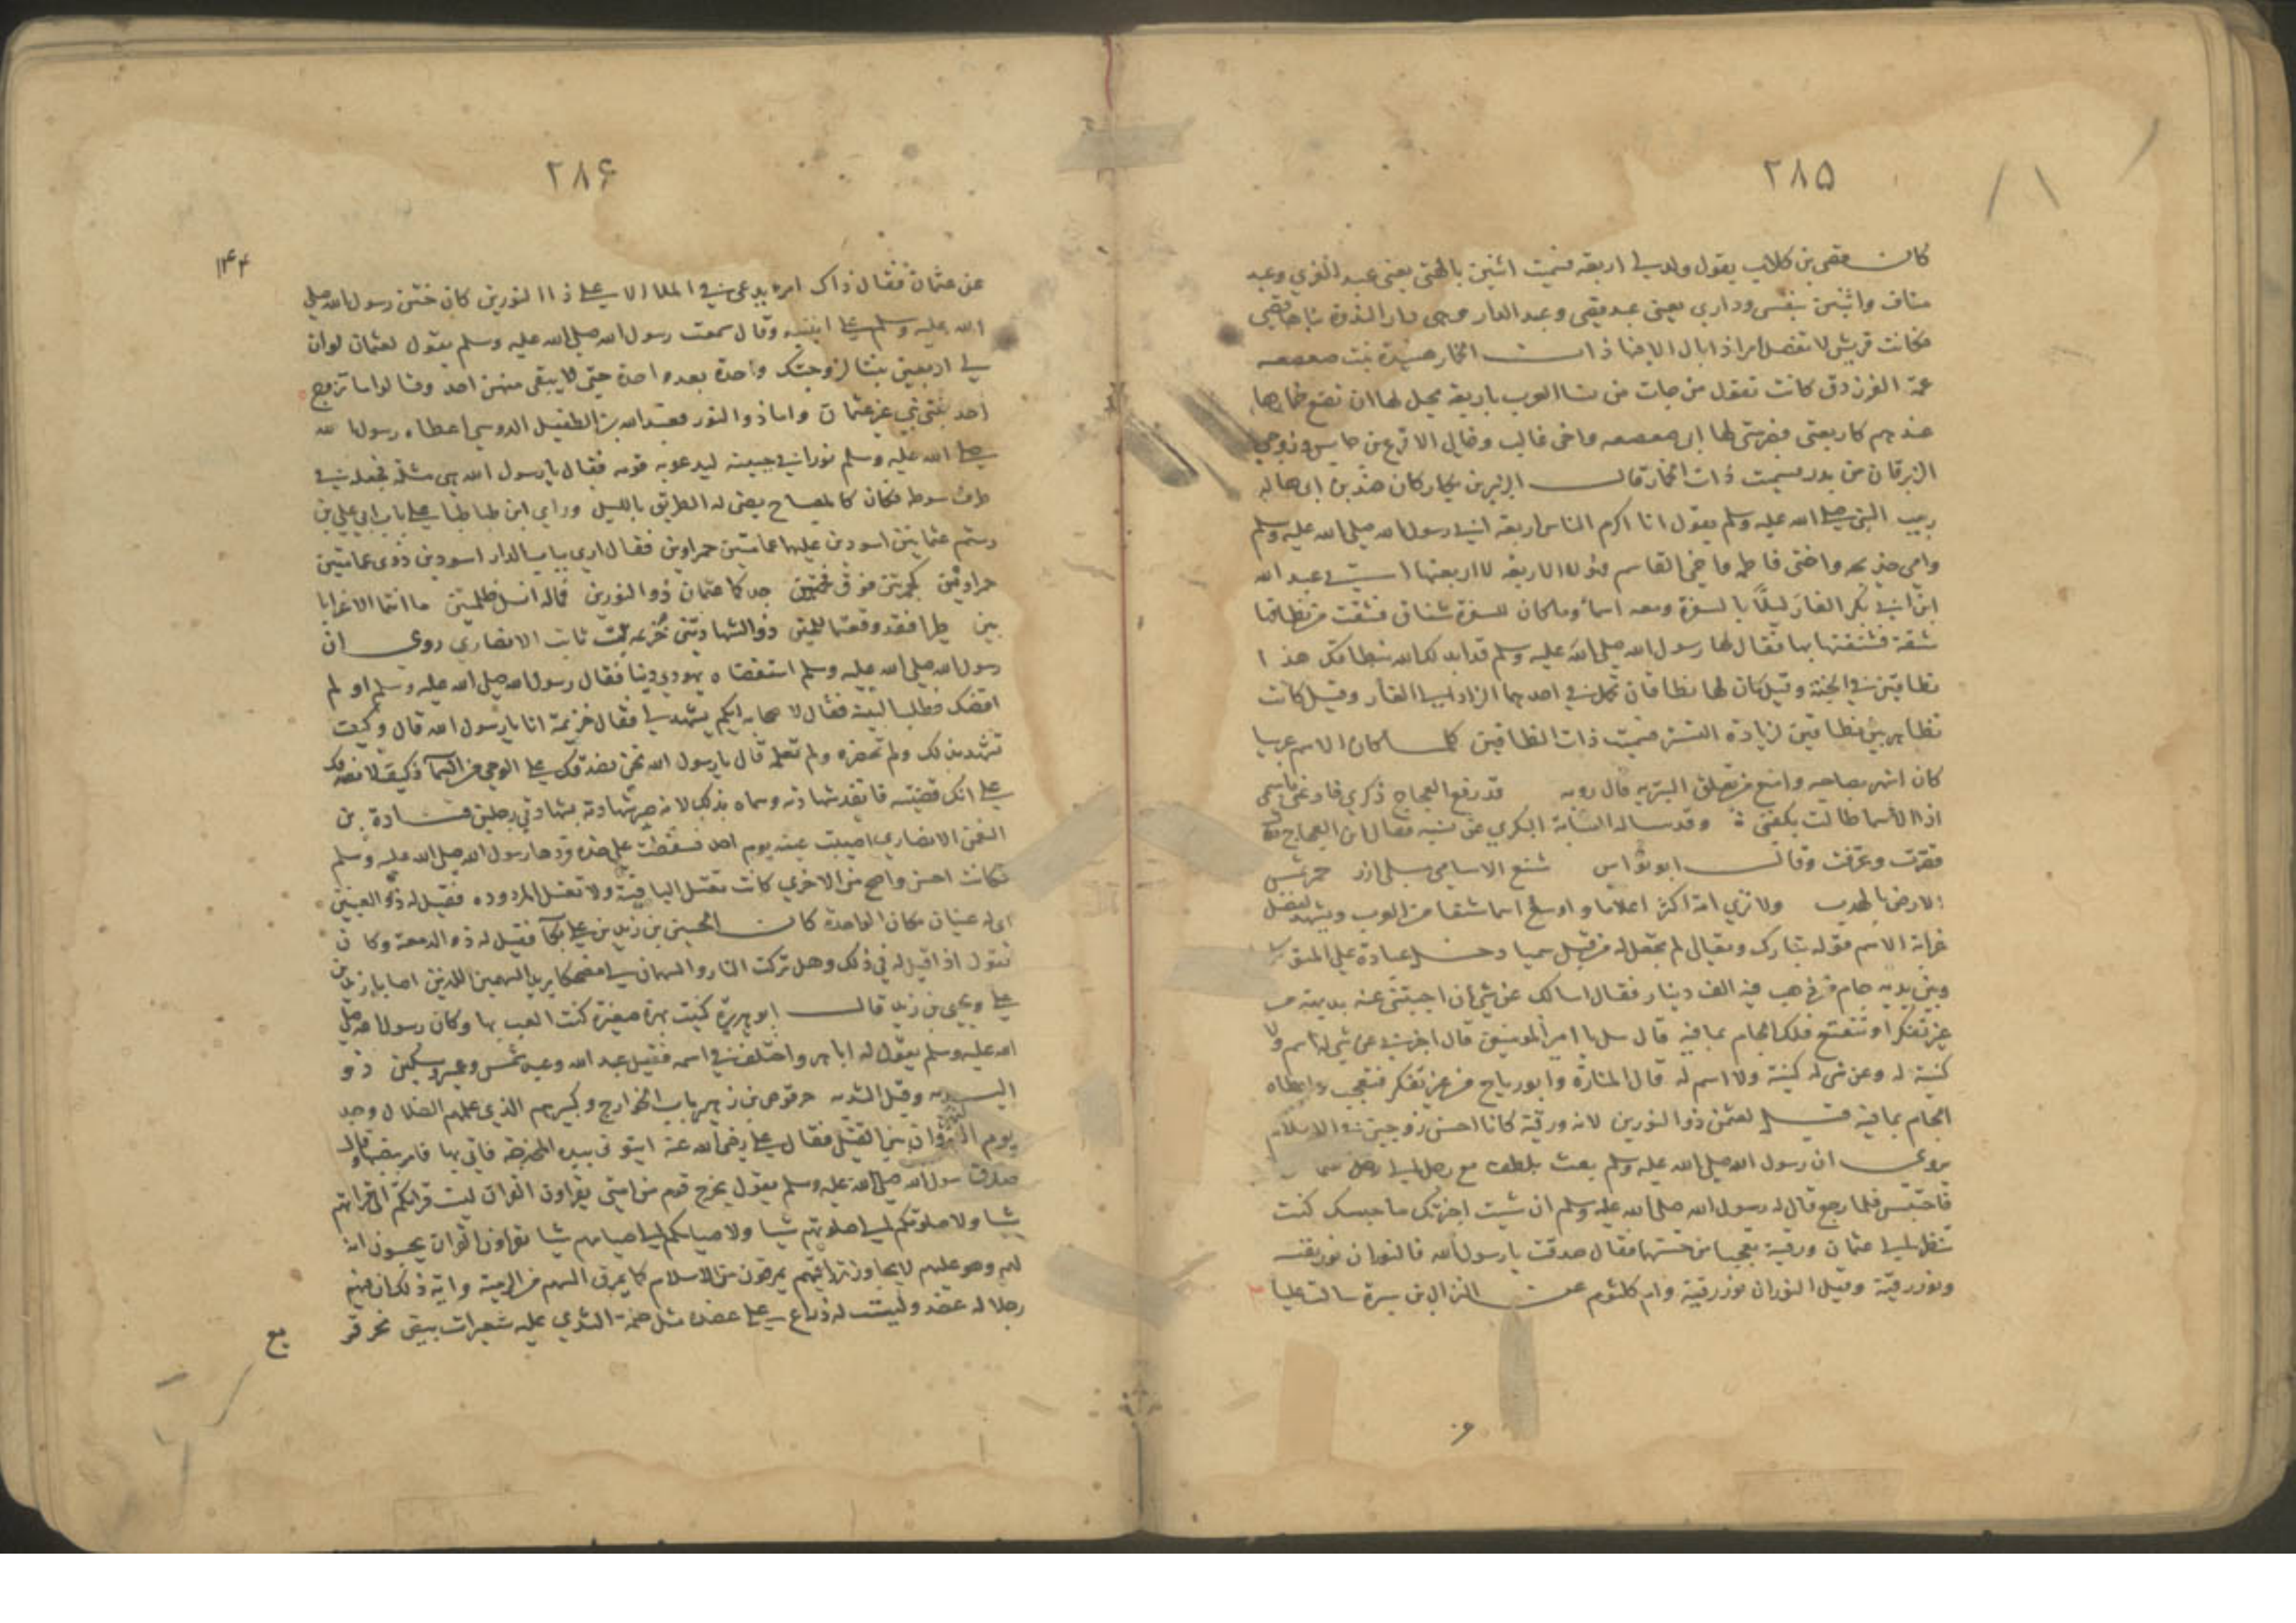 ٢٨٥
كان قصي بن كلاب يقول ولد لي اربعة فسميت اثنين بالهتي يعني عبد العزي وعبد
مناف واثنين بنفسي وداري يعني عبد قصي وعبد الدار وهي دار الندوة بناها قصي
فكانت قريش لا تفصل امرا ذا بال الا فيها ذات الخمار هنيدة بنت صعصعه
عمة الفرزدق كانت تقول من جات من نسا العرب باربعة يحل لها ان تضع خمارها
عندهم كاربعتي فضرتي لها ابي صعصعه واخي غالب وخالي الاقرع بن حابس وزوجي
الزبرقان بن بدر فسميت ذات الخمار قال الزبير بن بكار كان هند بن ابي هالة
ربيب النبي صلى الله عليه وسلم يقول انا اكرم الناس اربعة ابي رسول الله صلى الله عليه وسلم
وامي خديجة واختي فاطمة واخي القاسم فهولا الاربعة لا اربعتها عبد الله
ابن ابي بكر الغار ليلًا بالسفرة ومعه اسما وما كان للسفرة شناق فشقت من نطاقها
شقة فشنقتها بها فقال لها رسول الله صلى الله عليه وسلم قد ابدلك الله بنطاقك هذا
نطاقين في الجنة وقيل كان لها نطاقان تحمل في احدهما الزاد الى الغار وقيل كانت
تظاهر بين نطاقين لزيادة التستر فسميت ذات النطاقين كلما كان الاسم غريبا
كان اشهر بصاحبه وامنع من تعلق النبز به قال روبه قد رفع العجاج ذكري فادعني باسمي
اذا الاسما طالت يكفني وقد ساله النسابة البكري عن نسبه فقال ابن العجاج فقال
قصرت وعرفت وقال ابو نواس شنع الاسامي مسبلي ازر حمر تمس
الارض بالهدب ولا نري امة اكثر اعلاما واوسع اسما شتقا من العرب ويشهد لفضل
غرابة الاسم قوله تبارك وتعالى لم نجعل له من قبل سميا دخل عبادة علي المتوكل
وبين يديه جام من ذهب فيه الف دينار فقال اسالك عن شي فان اجبتني عنه بديهة من
غير تفكر او تتعتع فلك الجام بما فيه قال سل يا امير المومنين قال اخبرني عن شي له اسم ولا
كنية له وعن شي له كنية ولا اسم له قال المنارة وابو رياح من غير تفكر فتعجب واعطاه
الجام بما فيه قيل لعثمن ذو النورين لانه ورقية كانا احسن زوجين في الاسلام
يروي ان رسول الله صلى الله عليه وسلم بعث بلطف مع رجل الى
فاحتبس فلما رجع قال له رسول الله صلى الله عليه وسلم ان شيت اخبرتك ما حبسك كنت
تنظر الى عثمان ورقية تعجبا من حسنهما فقال صدقت يا رسول الله فالنوران نور نفسه
ونور رقية وقيل النوران نور رقية وام كلثوم عن النزال بن سبرة سالت عليا
٢٨٦
١٤٤
عن عثمان فقال ذاك امرء يدعى في الملا الاعلى ذا النورين كان ختن رسول الله صلى
الله عليه وسلم على ابنتيه وقال سمعت رسول الله صلى الله عليه وسلم يقول لعثمان لو ان
لي اربعين بنتا لزوجتك واحدة بعد واحدة حتى لا يبقى منهن احد وقالوا ما تزوج
احد بنتي نبي غير عثمان واما ذو النور فعبد الله بن الطفيل الدوسي اعطاه رسول الله
صلى الله عليه وسلم نورا في جبينه ليدعو به قومه فقال يا رسول الله هي مثلة فجعله في
طرف سوطه فكان كالمصباح يضي له الطريق بالليل وراي ابن طباطبا على باب ابي علي بن
رستم عثمانيين اسودين عليهما عمامتين حمراوين فقال اري بباب الدار اسودين ذوي عمامتين
حمراوين كجمرتين فوق فحمتين جدكما عثمان ذو النورين فماله انسل ظلمتين ما انتما الا غرابا
بين طيرا فقد وقعتما للبين ذو الشهادتين خزيمة بن ثابت الانصاري روي ان
رسول الله صلى الله عليه وسلم استقضاه يهودي دينا فقال رسول الله صلى الله عليه وسلم او لم
اقضك فطلب البينة فقال لاصحابه ايكم يشهد لي فقال خزيمة انا يا رسول الله قال وكيف
تشهد بذلك ولم تحضره ولم تعلمه قال يا رسول الله نحن نصدقك على الوحي من السما فكيف لا نصدقك
على انك قضيته فانفذ شهادته وسماه بذلك لانه صير شهادته بشهادتي رجلين قتادة بن
النعمن الانصاري اصيبت عينه يوم احد فسقطت علي خده فردها رسول الله صلى الله عليه وسلم
فكانت احسن واصح من الاخري كانت تعتل الباقية ولا تعتل المردودة فقيل له ذو العينين
اي له عينان مكان الواحدة كان الحسين بن زيد بن علي بكا فقيل له ذو الدمعة وكان
يقول اذا قيل له في ذلك وهل تركت النار والسهمان لي مضحكا يريد السهمين اللذين اصابا زيد بن
علي ويحيى بن زيد قال ابو هريرة كنيت بهرة صغيرة كنت العب بها وكان رسول الله صلى
الله عليه وسلم يقول له ابا هر واختلف في اسمه فقيل عبد الله وعبد شمس وعمير وسكين ذو
اليدية وقيل الثدية حرقوص بن زهير باب الخوارج وكبيرهم الذي علمهم الضلال وجد
يوم النهروان بين القتلى فقال علي رضي الله عنه ايتوني بيده المخدجة فاتي بها فامر بنصبها قال
صدق رسول الله صلى الله عليه وسلم يقول يخرج قوم من امتي يقراون القران ليست قراتكم الى قراتهم
شيا ولا صلوتكم الى صلوتهم شيا ولا صيامكم الى صيامهم شيا يقراون القران يحسبون انه
لهم وهو عليهم لا يجاوز تراقيهم يمرقون من الاسلام كما يمرق السهم من الرمية واية ذلك ان فيهم
رجلا له عضد وليست له ذراع على عضده مثل حلمة الثدي عليه شعيرات بيض